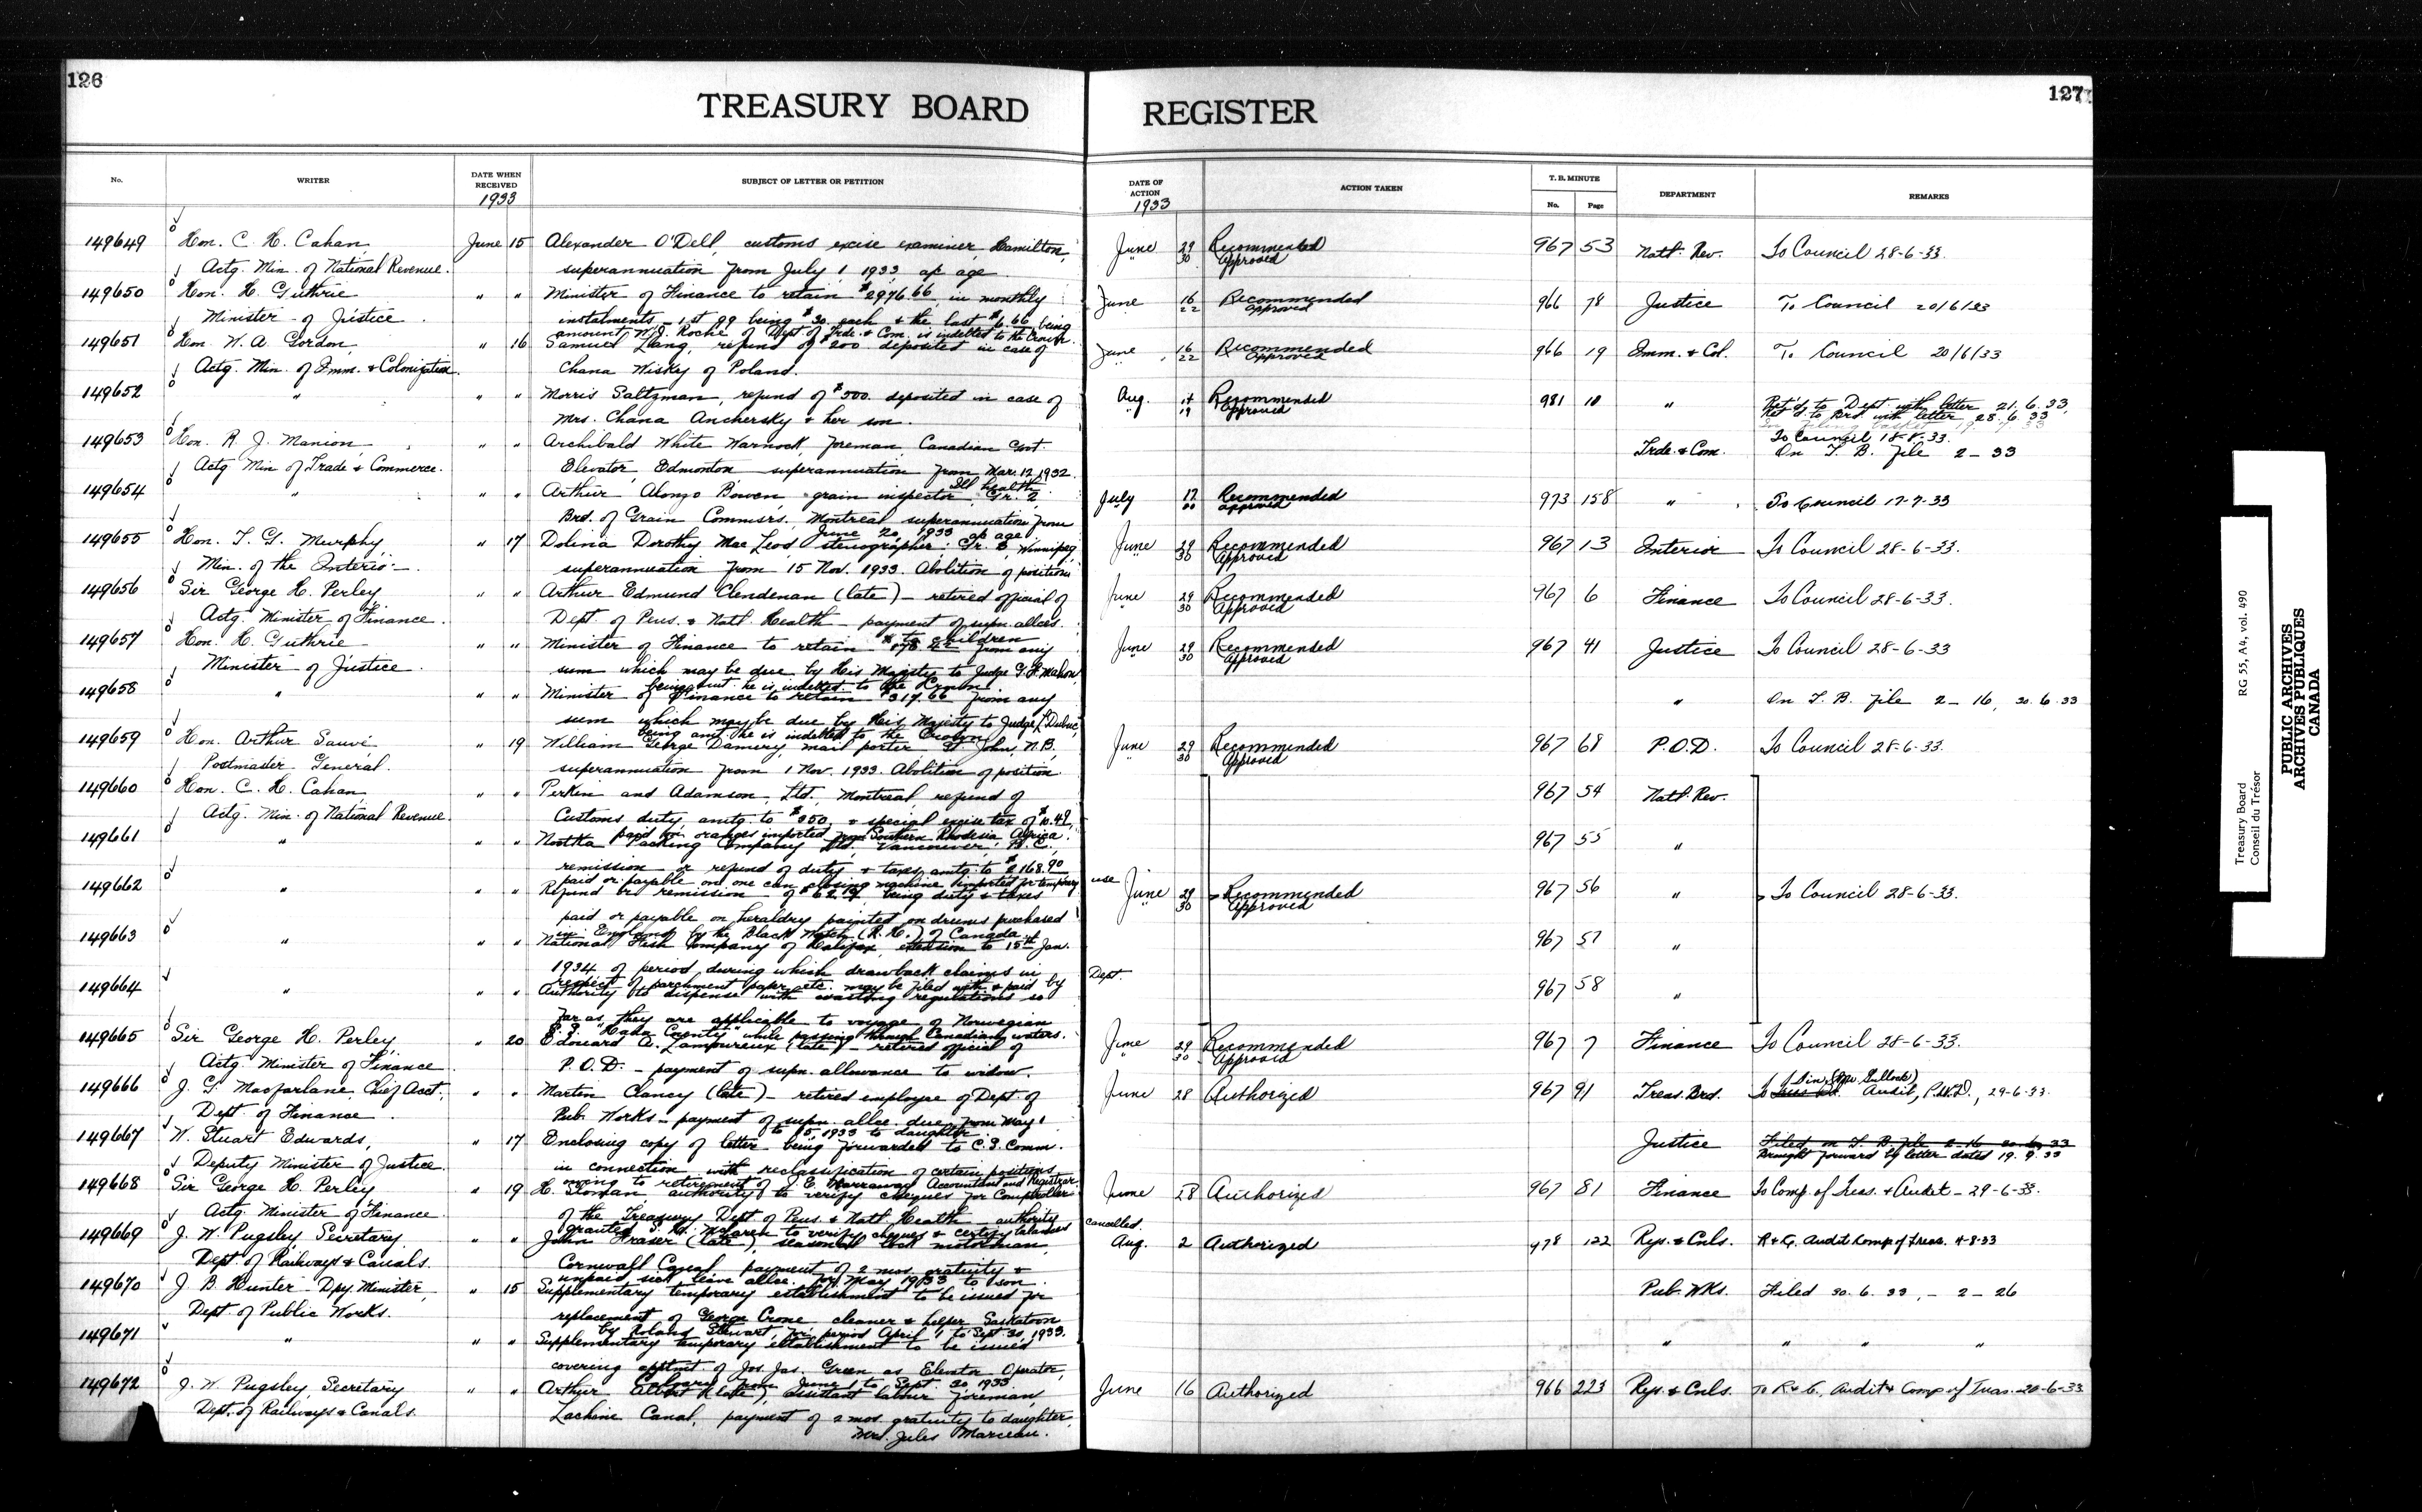 126
TREASURY BOARD
REGISTER
127
No.
WRITER
DATE WHEN RECEIVED
1933
SUBJECT OF LETTER OR PETITION
DATE OF ACTION
1933
ACTION TAKEN
T. B. MINUTE
No.
Page
DEPARTMENT
REMARKS
149649 Hon. C. H. Cahan June 15 Alexander O'Dell, customs excise examiner, Hamilton, June 29 Recommended 967 53 Natl. Rev. To Council 28-6-33.
Actg. Min. of National Revenue. superannuation from July 1 1933 ap age " 30 Approved
149650 Hon. H. Guthrie " " Minister of Finance to retain $2976.66 in monthly June 16 Recommended 966 78 Justice To Council 20/6/33
Minister of Justice. instalments - 1st 99 being $30. each & the last $6.66 being " 22 Approved
amount W. J. Roche of Dept. of Trde. & Com. is indebted to the Crown.
149651 Hon. W. A. Gordon, " 16 Samuel Lang, refund of $200 deposited in case of June 16 Recommended 966 19 Imm. & Col. To Council 20/6/33
Actg. Min. of Imm. & Colonization. Chana Wisky of Poland. " 22 Approved
149652 " " " Morris Saltzman, refund of $500. deposited in case of Aug. 17 Recommended 981 10 " Ret'd to Dept. with letter 21.6.33.
Mrs. Chana Anchersky & her son. " 19 Approved Ret'd to Brd. with letter 28.6.33
To Council 18-8-33.
149653 Hon. R. J. Manion, " " Archibald White Warnock, foreman, Canadian Govt. Trde. & Com. On T. B. file 2-33
Actg Min of Trade & Commerce. Elevator, Edmonton superannuation from Mar. 12, 1932.
Ill health
149654 " " " Arthur Alonzo Bowen grain inspector, Gr. 2, July 17 Recommended 973 158 " To Council 17-7-33
Brd. of Grain Commsrs., Montreal superannuation from Approved
June 20, 1933 ap age
149655 Hon. T. G. Murphy, " 17 Dolina Dorothy MacLeod stenographer, Gr. 2, Winnipeg, June 29 Recommended 967 13 Interior To Council 28-6-33.
Min. of the Interior. superannuation from 15 Nov. 1933. Abolition of position " 30 Approved
149656 Sir George H. Perley " " Arthur Edmund Clendenan (late) - retired official of June 29 Recommended 967 6 Finance To Council 28-6-33.
Actg. Minister of Finance. Dept of Pens. & Natl. Health - payment of supn. allces. " 30 Approved
to children
149657 Hon. H. Guthrie " " Minister of Finance to retain from any June 29 Recommended 967 41 Justice To Council 28-6-33
Minister of Justice. sum which may be due by His Majesty to Judge G. F. Mahon, " 30 Approved
being amt he is indebted to the Crown
149658 " " " Minister of Finance to retain $317.66 from any " On T. B. file 2-16, 30.6.33
sum which may be due by His Majesty to Judge L. Dubuc,
being amt he is indebted to the Crown
149659 Hon. Arthur Sauvé, " 19 William George Damery, mail porter St John, N.B. June 29 Recommended 967 68 P.O.D. To Council 28-6-33.
Postmaster General. superannuation from 1 Nov. 1933. Abolition of position. " 30 Approved
149660 Hon. C. H. Cahan, " " Perkin and Adamson, Ltd., Montreal, refund of 967 54 Natl. Rev.
Actg. Min. of National Revenue. Customs duty, amtg. to $350. & special excise tax of $10.49,
paid on oranges imported from Southern Rhodesia Africa.
149661 " " " Nootka Packing Company Ltd. Vancouver, B.C. 967 55 "
remission or refund of duty & taxes, amtg. to $2168.90
paid or payable on one can closing machine imported for temporary use
149662 " " " Refund or remission of being duty & taxes June 29 Recommended 967 56 " To Council 28-6-33.
paid or payable on heraldry painted on drums purchased 30 Approved
in England by the Black Watch (R.H.) of Canada
149663 " " " National Fish Company of Halifax, extension to 15th Jan. 967 57 "
1934 of period during which drawback claims in
respect of parchment paper, etc. may be filed with & paid by Dept.
149664 " " " Authority to dispense with coasting regulations so 967 58 "
far as they are applicable to voyage of Norwegian
S.S. "Hada County" while passing through Canadian waters.
149665 Sir George H. Perley, " 20 Edouard A. Lamoureux (late) - retired official of June 29 Recommended 967 7 Finance To Council 28-6-33.
Actg. Minister of Finance. P.O.D. - payment of supn. allowance to widow. " 30 Approved
149666 J. G. Macfarlane, Chief Acct., " " Martin Clancy (late) - retired employee of Dept. of June 28 Authorized 967 91 Treas. Brd. To Audit, P.W.D., 29-6-33.
Dept of Finance. Pub. Works - payment of supn. allce. due from May 1
to 15, 1933 to daughter
149667 W. Stuart Edwards, " 17 Enclosing copy of letter being forwarded to C.S. Comm. Justice Filed on T. B. file 2-16 30.6.33
Deputy Minister of Justice. in connection with reclassification of certain positions Brought forward by letter dated 19.9.33
owing to retirement of J. E. Narraway Accountant and Registrar.
149668 Sir George H. Perley " 19 H. Sloman, authority to verify cheques for Comptroller June 28 Authorized 967 81 Finance To Comp. of Treas. & Audit - 29-6-33.
Actg. Minister of Finance. of the Treasury, Dept of Pens. & Natl. Health - authority
granted S. H. McLaren to verify cheques & certify balances cancelled.
149669 J. W. Pugsley, Secretary " " John Fraser (late), seasonal lock motorman, Aug. 2 Authorized 978 122 Rys. & Cnls. R & C. Audit Comp of Treas. 4-8-33
Dept. of Railways & Canals. Cornwall Canal payment of 2 mos. gratuity &
unpaid sick leave allce. for May 1933 to son.
149670 J. B. Hunter - Dpy. Minister, " 15 Supplementary temporary establishment to be issued for Pub. Wks. Filed 30.6.33, - 2-26
Dept. of Public Works. replacement of George Crone, cleaner & helper Saskatoon
by Roland Stewart, for period April 1 to Sept. 30, 1933.
149671 " " " Supplementary temporary establishment to be issued " " " "
covering apptmt. of Jos. Jas. Green as Elevator Operator,
Calgary from June 1 to Sept. 30 1933
149672 J. W. Pugsley, Secretary " " Arthur Albert (late), assistant labour foreman, June 16 Authorized 966 223 Rys. & Cnls. To R & C., Audit & Comp of Treas. 20-6-33
Dept. of Railways & Canals. Lachine Canal, payment of 2 mos. gratuity to daughter,
Mrs. Jules Marceau.
Treasury Board RG 55, A4, vol. 490
Conseil du Trésor
PUBLIC ARCHIVES
ARCHIVES PUBLIQUES
CANADA